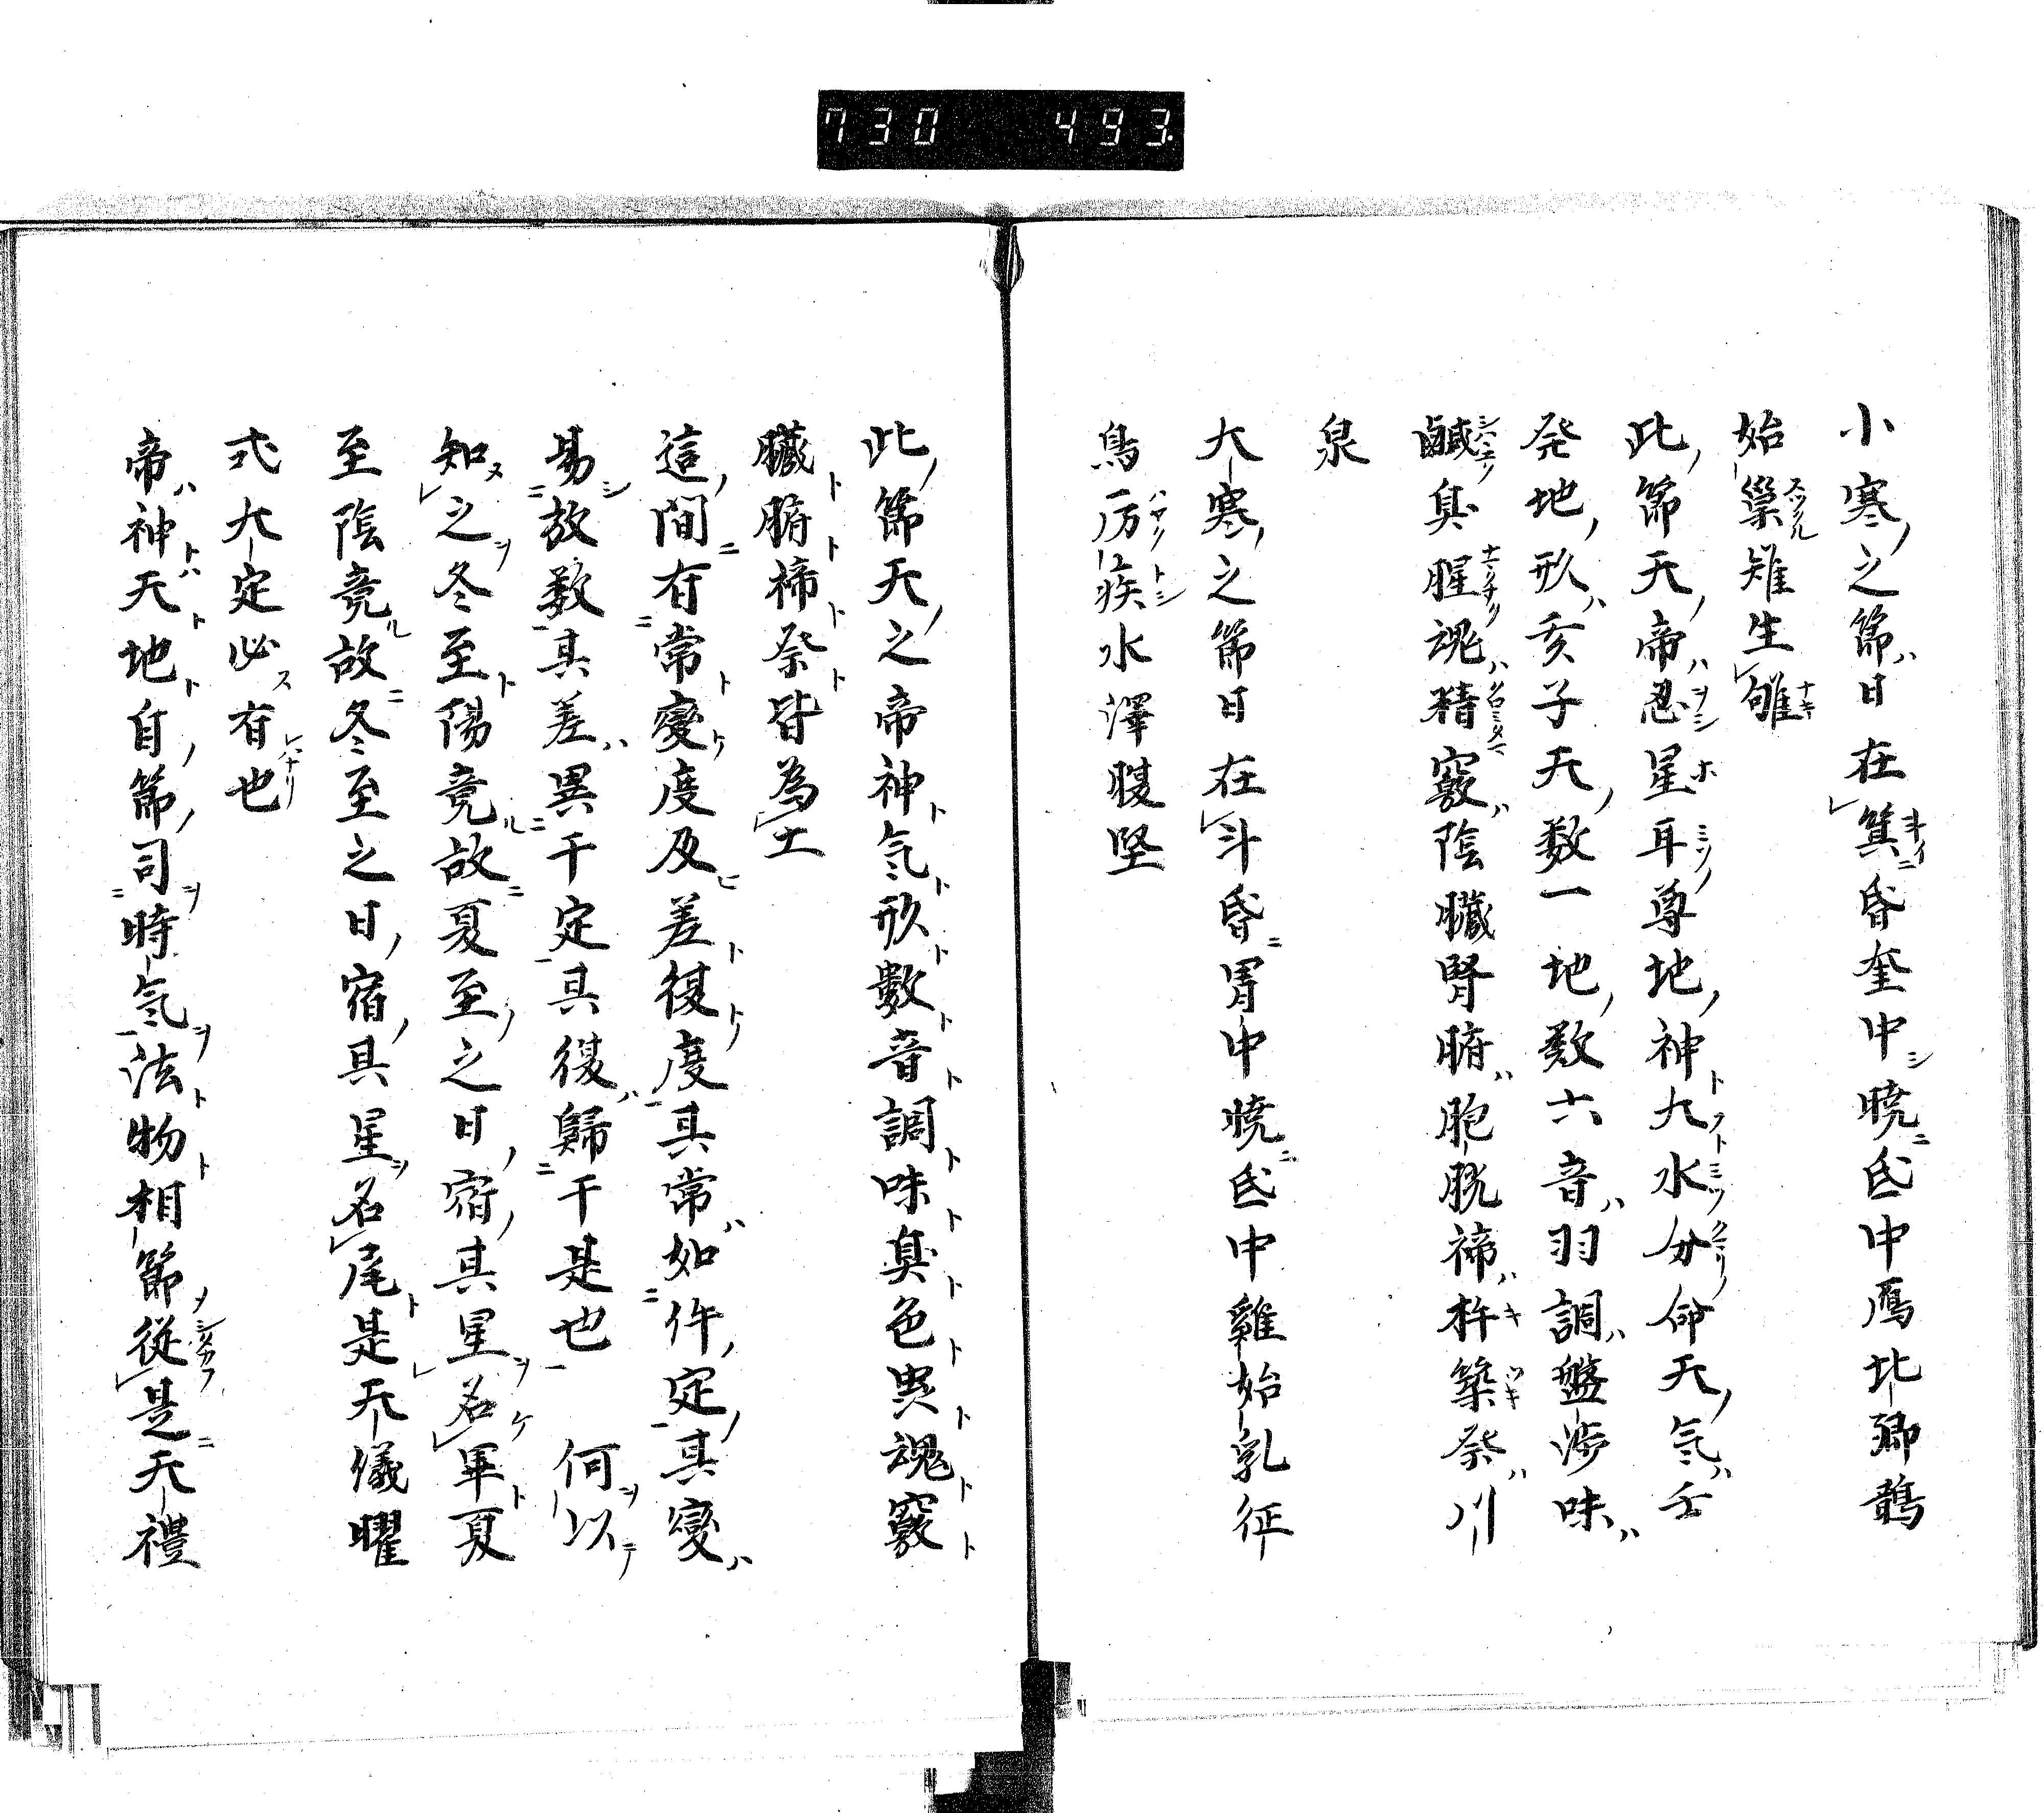 730 493
小寒之節日在箕昏奎中暁氐中鴈北郷鵲
始巣雉生雊
此節天帝忍星耳尊地神大水分命天気壬
癸地形亥子天数一地数六音羽調盤渉味
鹹臭腥魂精竅陰臓腎腑胞脱禘杵築祭川
泉
大寒之節日在斗昏胃中暁氐中雞始乳征
鳥厉疾水澤腹堅
此節天之帝神気形數音調味臭色味魂竅
臓腑禘祭皆為土
這間有常變度及差復度其常如件定其變
易故数其差異于定其復歸于是也 何以
知之冬至陽竟故夏至之日宿其星名畢夏
至陰竟故冬至之日宿其星名尾是天儀曜
式大定必有也
帝神天地自節司時気法物相節從是天禮